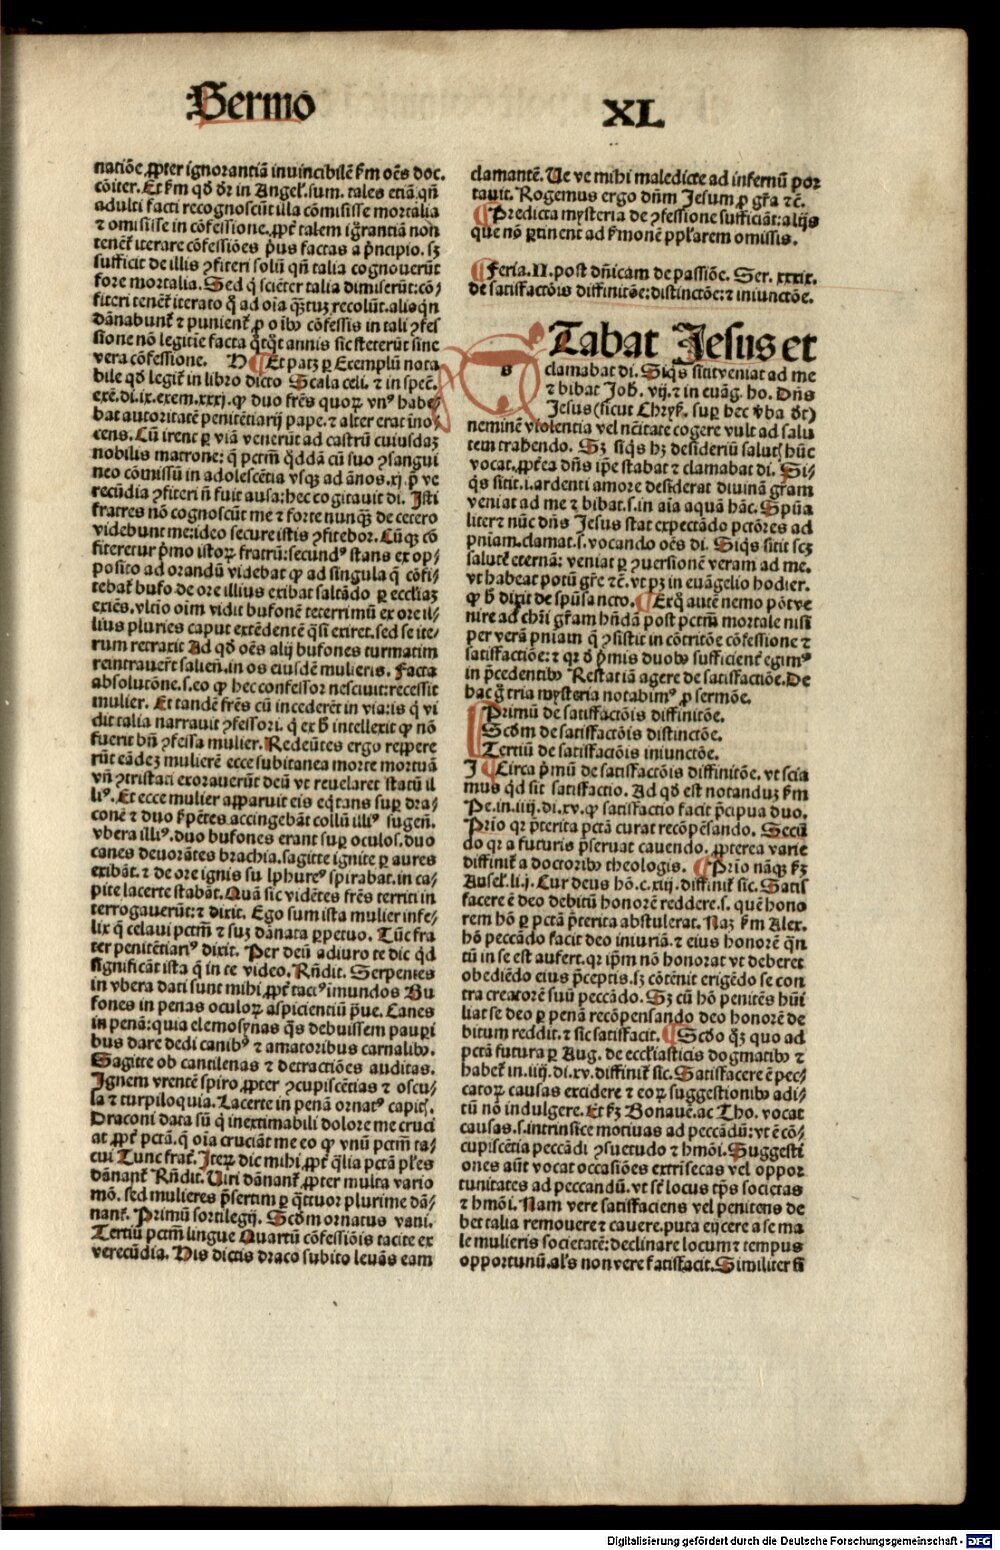 Sermo
XL
natiõe ꝓpter ignorantiã inuincibilẽ ẜm oẽs doc.
cõiter. Et ẜm qḋ dr̃ in Angeł. sum. tales etiã qñ
adulti facti recognoscũt illa cõmisisse mortalia
⁊ omisisse in cõfessione. ꝓpt̃ talem igr̃antiã non
tenẽt̃ iterare cõfessiões p̃us factas a p̃ncipio. sꝫ
sufficit de illis ꝯfiteri solũ qñ talia cognouerũt
fore mortalia. Sed q̇ sciẽter talia dimiserũt: cõ⸗
fiteri tenẽt̃ iterato q̃ ad oĩa q̃tuꝫ recolũt. alioq̇n
dãnabunt̃ ⁊ punient̃ ꝓ oĩbꝰ cõfessis in tali ꝯfes
sione nõ legitie facta q̃tq̃t annis sic steterũt sine
vera cõfessione. H ¶ Et patꝫ ꝑ Exemplũ nota
bile qḋ legit̃ in libro dicto Scala celi. ⁊ in specĩ.
exẽ. di. ix. exem. xxxj. ꝙ duo fr̃es quoꝝ vnꝰ habe⸗
bat autoritatẽ penitẽtiarij pape. ⁊ alter erat ĩno⸗
cens. Cũ irent ꝑ viã venerũt ad castrũ cuiusdaꝫ
nobilis matrone: q̃ pctm̃ q̇ddã cũ suo ꝯsangui
neo cõmissũ in adolescẽtia vsqꝫ ad ãnos. xj. p̃ ve
recũdia ꝯfiteri ñ fuit ausa: hec cogitauit di. Isti
fratres nõ cognoscũt me ⁊ forte nunq̃ꝫ de cetero
videbunt me: ideo secure istis ꝯfitebor. Cũqꝫ cõ
fiteretur p̃mo istoꝝ fratrũ: secundꝰ stans ex op⸗
posito ad orandũ videbat ꝙ ad singula q̃ cõfi⸗
tebat̃ bufo de ore illius exibat saltãdo ꝑ ecclĩaꝫ
exiẽs. vltio oĩm vidit bufonẽ teterrimũ ex ore il⸗
lius pluries caput extẽdentẽ q̃si exiret. sed se ite⸗
rum retraxit Ad qḋ oẽs alij bufones turmatim
reintrauer̃t salieñ. in os eiusdẽ mulieris. Facta
absolutõne. s. eo ꝙ hec confessor nesciuit: recessit
mulier. Et tandẽ fr̃es cũ incederẽt in via: is q̇ vi
dit talia narrauit ꝯfessori. q̇ ex ħ intellexit ꝙ nõ
fuerit bñ ꝯfessa mulier. Redeũtes ergo reppere
rũt eãdeꝫ mulierẽ ecce subitanea morte mortuã
vñ ꝯtristati exorauerũt deũ vt reuelaret statũ il
liꝰ. Et ecce mulier apparuit eis eq̇tans suꝑ dra⸗
conẽ ⁊ duo s̃pẽtes accingebãt collũ illiꝰ sugeñ.
vbera illiꝰ. duo bufones erant suꝑ oculos. duo
canes deuorãtes brachia. sagitte ignite ꝑ aures
exibãt. ⁊ de ore ignis sulphureꝰ spirabat. in ca⸗
pite lacerte stabãt. Quã sic vidẽtes fr̃es territi in
terrogauerũt: ⁊ dixit. Ego sum ista mulier infe⸗
lix q̃ celaui pctm̃ ⁊ suꝫ dãnata ꝑpetuo. Tũc fra
ter penitẽtiariꝰ dixit. Per deũ adiuro te dic qḋ
significãt ista q̃ in te video. Rñdit. Serpentes
in vbera dati sunt mihi ꝓpt̃ tactꝰ ĩmundos Bu
fones in penas oculoꝝ aspicientiũ p̃ue. Canes
in penã: quia elemosynas q̃s debuissem pauꝑi
bus dare dedi canibꝰ ⁊ amatoribus carnalibꝰ.
Sagitte ob cantilenas ⁊ detractiões auditas.
Ignem vrentẽ spiro ꝓpter ꝯcupiscẽtias ⁊ oscu⸗
la ⁊ turpiloquia. Lacerte in penã ornatꝰ capitꝭ.
Draconi data sũ q̇ inextimabili dolore me cruci
at ꝓpt̃ pctã. q̃ oĩa cruciãt me eo ꝙ vnũ pctm̃ ta⸗
cui Tunc frat̃. Iteꝝ dic mihi ꝓpt̃ q̃lia pctã pl̃es
dãnant̃ Rñdit. Viri dãnant̃ ꝓpter multa vario
mõ. sed mulieres p̃sertim ꝑ q̃ttuor plurime dã⸗
nant̃. Primũ sortilegij. Scḋm ornatus vani.
Tertiũ pctm̃ lingue Quartũ cõfessiõis tacite ex
verecũdia. His dictis draco subito leuãs eam
clamantẽ. Ve ve mihi maledicte ad infernũ por
tauit. Rogemus ergo dñm Jesum ꝓ gr̃a ⁊c̃.
¶ Predicta mysteria de ꝯfessione sufficiãt: alijs
que nõ ꝑtinent ad s̃monẽ pplarem omissis.
¶ Feria. II. post dñicam de passiõe. Ser. xxxix.
de satisfactõis diffinitõe: distinctõe: ⁊ iniunctõe.
s Tabat Jesus et
clamabat di. Siq̇s sitit veniat ad me
⁊ bibat Joh. vij. ⁊ in euãg. ho. Dñs
Jesus (sicut Chryẜ. suꝑ hec v̾ba dt̃)
neminẽ violentia vel nc̃itate cogere vult ad salu
tem trahendo. Sꝫ siq̇s hꝫ desideriũ salutꝭ hũc
vocat. ꝓpt̾ea dñs ip̃e stabat ⁊ clamabat di. Si⸗
q̇s sitit. i. ardenti amore desiderat diuinã gr̃am
veniat ad me ⁊ bibat. s. in aĩa aquã hãc. Sp̃ua
liter ⁊ nũc dñs Jesus stat expectãdo pctõres ad
pñiam. clamat. s. vocando oẽs di. Siq̇s sitit scꝫ
salutẽ eternã: veniat ꝑ ꝯuersionẽ veram ad me.
vt habeat potũ gr̃e ⁊c̃. vt pꝫ in euãgelio hodier.
ꝙ ħ dixit de sp̃usancto. ¶ Exq̇ autẽ nemo põt ve
nire ad chr̃i gr̃am hñdã post pctm̃ mortale nisi
per verã pñiam q̃ ꝯsistit in cõtritõe cõfessione ⁊
satisfactiõe: ⁊ qr̃ d̾ p̃mis duobꝰ sufficient̾ egimꝰ
in p̃cedentibꝰ Restat iã agere de satisfactiõe. De
hac g̾ tria mysteria notabimꝰ ꝓ sermõe.
Primũ de satisfactõis diffinitõe.
Scḋm de satisfactõis distinctõe.
Tertiũ de satisfactõis iniunctõe.
I ¶ Circa p̃mũ de satisfactõis diffinitõe. vt scia
mus qḋ sit satisfactio. Ad qḋ est notanduꝫ ẜm
Pe. in. iiij. di. xv. ꝙ satisfactio facit p̃cipua duo.
Prĩo qr̃ p̃terita pctã curat recõpẽsando. Secũ
do qr̃ a futuris p̃seruat cauendo. ꝓpterea varie
diffinit̃ a doctoribꝰ theologis. ¶ Prĩo nãqꝫ ẜꝫ
Ansel. li. j. Cur deus hõ. c. xiij. diffinit̃ sic. Satis
facere ẽ deo debitũ honorẽ reddere. s. quẽ hono
rem hõ ꝑ pctã p̃terita abstulerat. Naꝫ ẜm Alex.
hõ peccãdo facit deo iniuriã. ⁊ eius honorẽ q̃n
tũ in se est aufert. qr̃ ip̃m nõ honorat vt deberet
obediẽdo eius p̃ceptis. sꝫ cõtẽnit erigẽdo se con
tra creatorẽ suũ peccãdo. Sꝫ cũ hõ penitẽs hũi
liat se deo ꝑ penã recõpensando deo honorẽ de
bitum reddit. ⁊ sic satisfacit. ¶ Scḋo q̃ꝫ quo ad
pctã futura ꝑ Aug. de eccłiasticis dogmatibꝰ ⁊
habet̃ in. iiij. di. xv. diffinit̃ sic. Satisfacere ẽ pec⸗
catoꝝ causas excidere ⁊ eoꝝ suggestionibꝰ adi⸗
tũ nõ indulgere. Et ẜꝫ Bonauẽ. ac Tho. vocat
causas. s. intrinsice motiuas ad peccãdũ: vt ẽ cõ⸗
cupiscẽtia peccãdi ꝯsuetudo ⁊ hmõi. Suggesti
ones aũt vocat occasiões extrĩsecas vel oppor
tunitates ad peccandũ. vt sĩt locus tp̃s societas
⁊ hmõi. Nam vere satisfaciens vel penitens de
bet talia remouere ⁊ cauere. puta eijcere a se ma
le mulieris societatẽ: declinare locum ⁊ tempus
opportunũ. al̃s non vere satisfacit. Similiter si
Digitalisierung gefördert durch die Deutsche Forschungsgemeinschaft - DFG